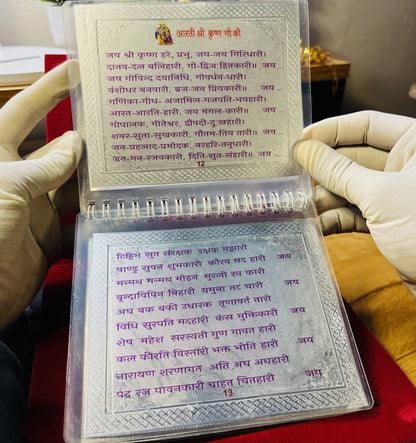 आरती श्री कृष्ण जी की
जय श्री कृष्ण हरे, प्रभु, जय-जय गिरिधारी।
दानव-दल बलिहारी, गो-द्विज हितकारी॥ जय ..
जय गोविन्द दयानिधि, गोवर्धन-धारी।
वंशीधर बनवारी, ब्रज-जन प्रियकारी॥ जय ..
गणिका-गीध- अजामिल-गजपति-भयहारी।
आरत-आरति-हारी, जय मंगल-कारी॥ जय ..
गोपालक, गीतेश्वर, द्रौपदी-दुःखहारी।
शबर-सुता-सुखकारी, गौतम-तिय तारी॥ जय ..
जन-प्रहलाद-प्रमोदक, नरहरि-तनुधारी।
जन-मन-रजनकारी, दिति-सुत-संहारी॥ जय ..
12
सुत संरक्षक रक्षक मंझारी
पाण्डु सुवन शुभकारी कौरव मद हारी जय
मन्मथ मन्मथ मोहन मुरली रव कारी
वृन्दाविपिन बिहारी यमुना तट चारी जय
अघ बक बकी उधारक तृणावर्त तारी
विधि सुरपति मदहारी कंस मुक्तिकारी जय
शेष महेश सरस्वती गुण गावत हारी
कल कीरति विस्तारी भक्त भीति हारी जय
नारायण शरणागत अति अघ अघहारी
पद्व रज पावनकारी चाहत चितहारी जय
13